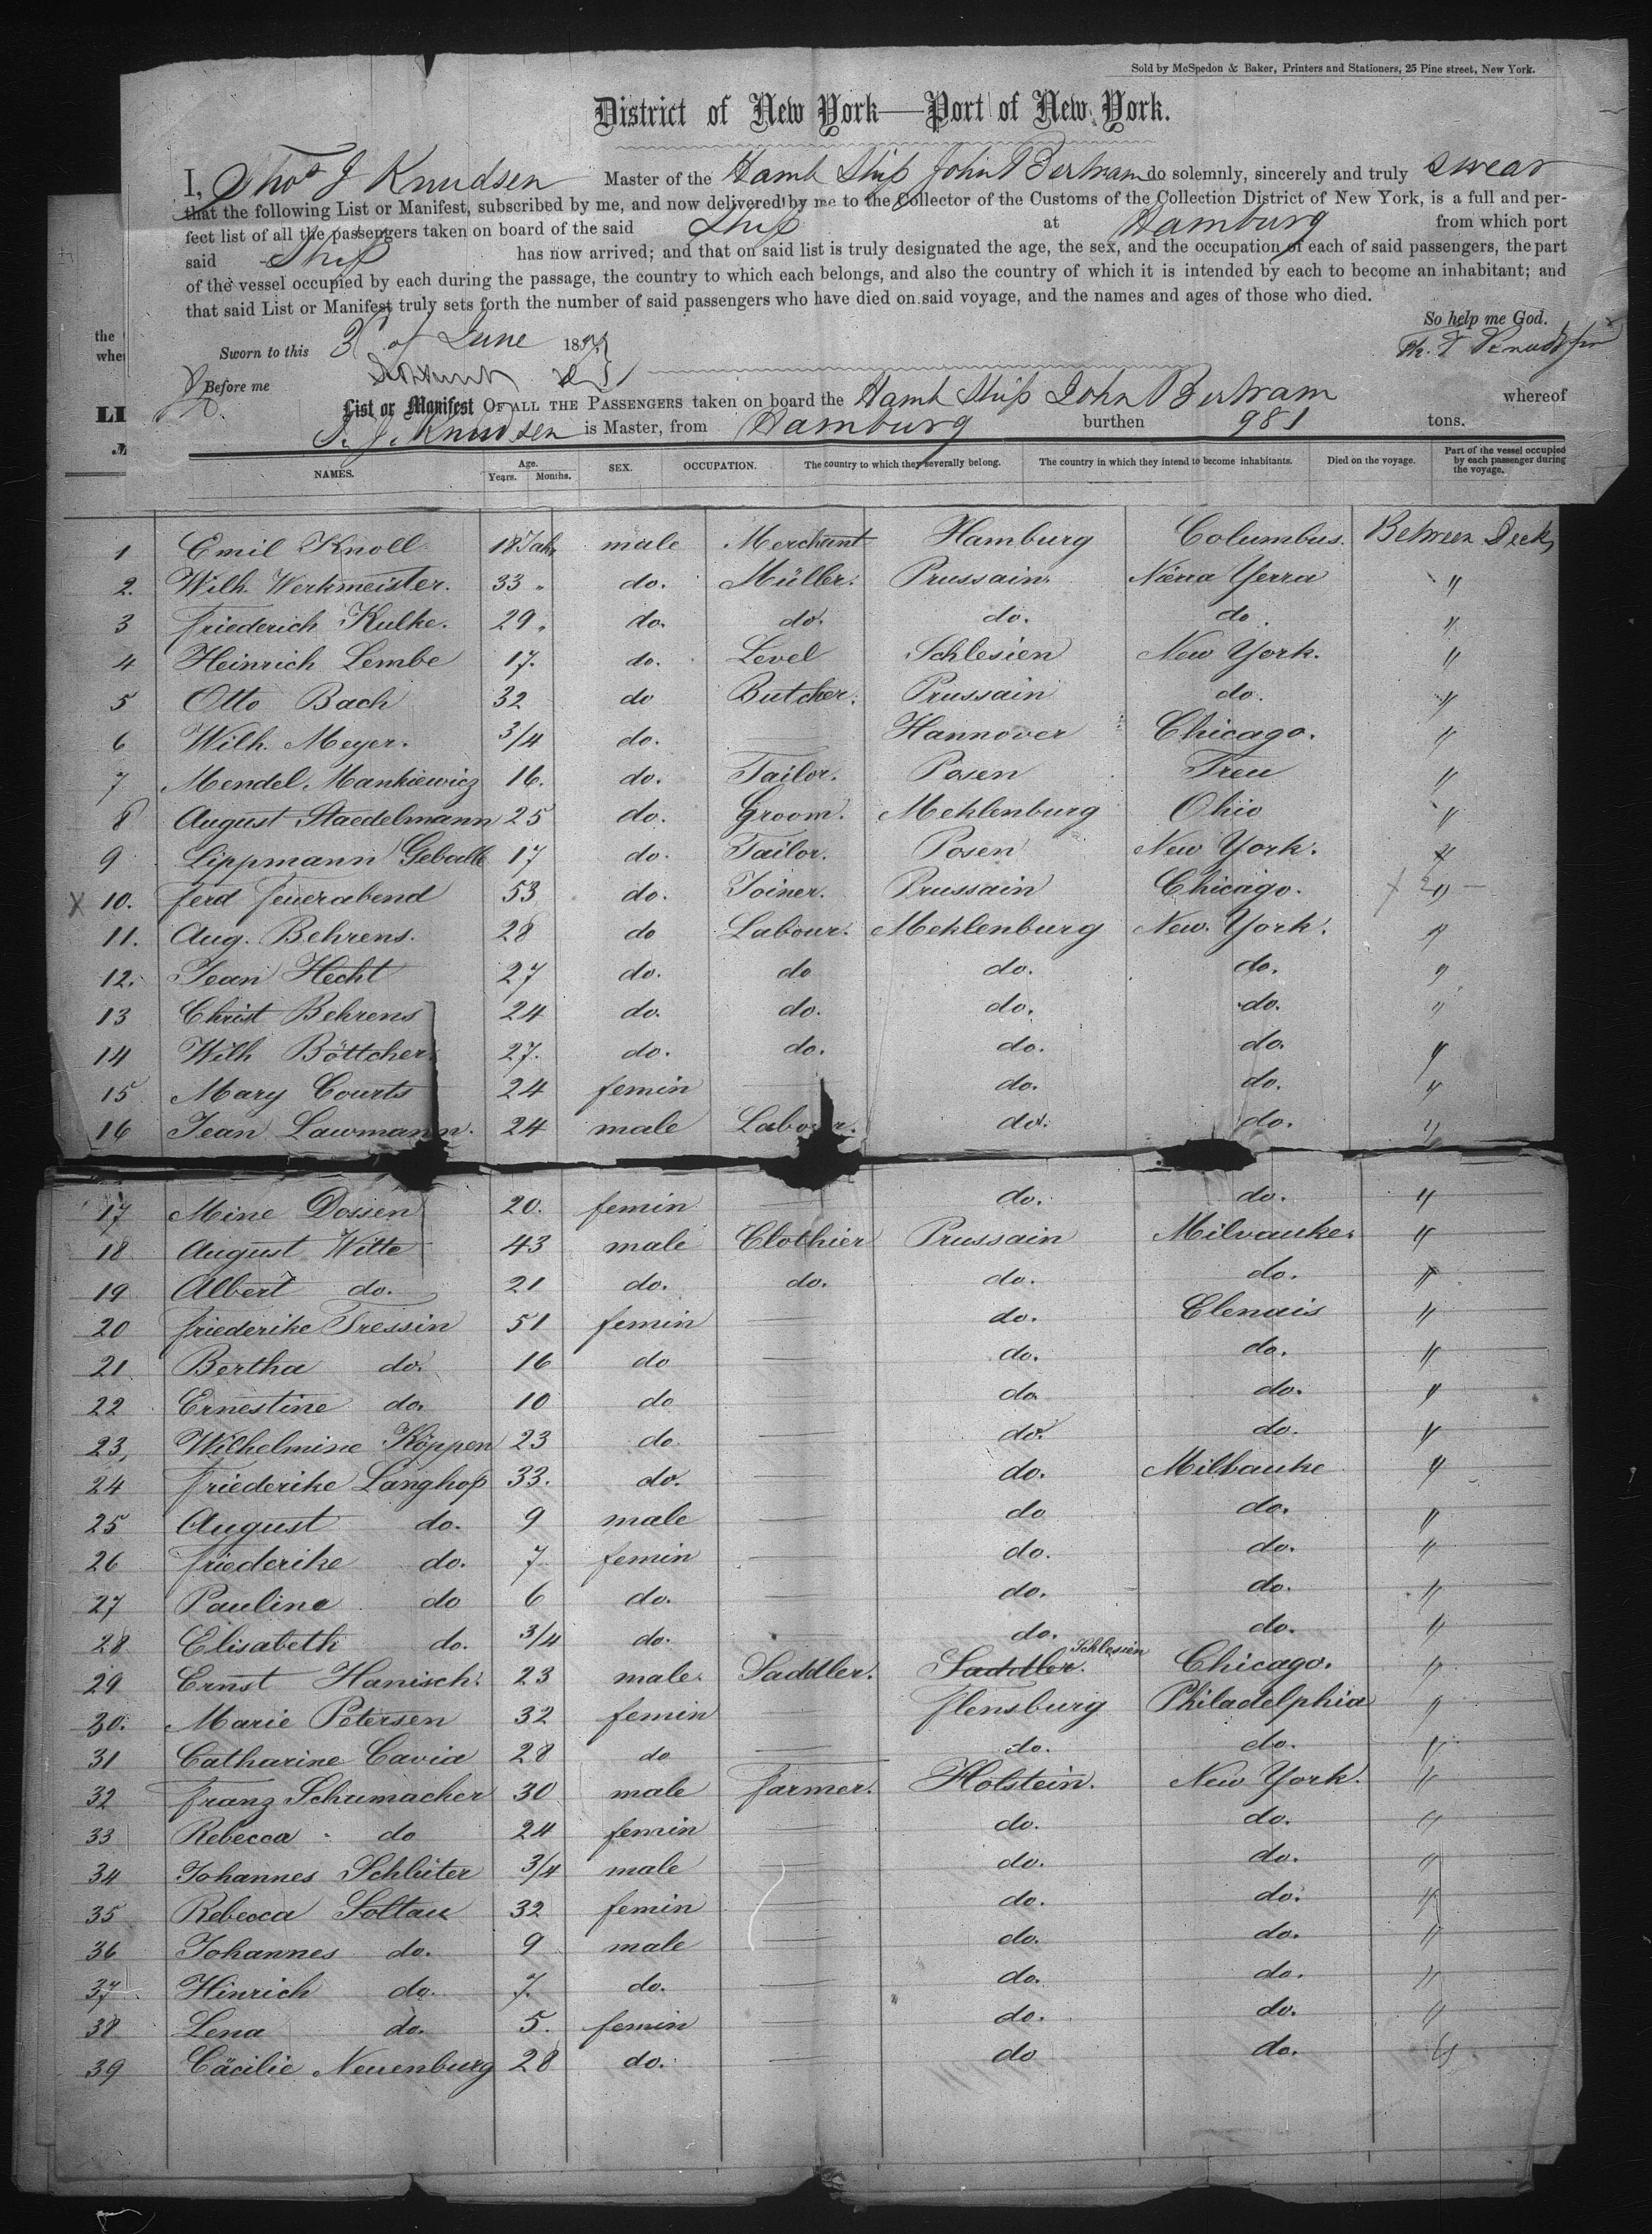 Sold by McSpedon & Baker, Printers and Stationers, 25 Pine street, New York.
District of New York—Port of New York.
I, Thos J Knudsen Master of the Hamb Ship John Bertram do solemnly, sincerely and truly swear
that the following List or Manifest, subscribed by me, and now delivered by me to the Collector of the Customs of the Collection District of New York, is a full and per-
fect list of all the passengers taken on board of the said Ship at Hamburg from which port
said Ship has now arrived; and that on said list is truly designated the age, the sex, and the occupation of each of said passengers, the part
of the vessel occupied by each during the passage, the country to which each belongs, and also the country of which it is intended by each to become an inhabitant; and
that said List or Manifest truly sets forth the number of said passengers who have died on said voyage, and the names and ages of those who died.
So help me God.
Sworn to this 3 of June 185
Before me
List or Manifest OF ALL THE PASSENGERS taken on board the Hamb Ship John Bertram whereof
T. J. Knudsen is Master, from Hamburg burthen 981 tons.
NAMES. Age. Years. Months. SEX. OCCUPATION. The country to which they severally belong. The country in which they intend to become inhabitants. Died on the voyage. Part of the vessel occupied by each passenger during the voyage.
1 Emil Knoll 18 Jahr male Merchant Hamburg Columbus. Between Deck
2. Wilh. Werkmeister. 33 " do. Müller. Prussain Yerra "
3 Friederich Kulke. 29 " do. do. do. do. "
4 Heinrich Lembe 17. do. Level Schlesien New York. "
5 Otto Bach 32 do Butcher. Prussain do. "
6 Wilh. Meyer. 3/4 do. — Hannover Chicago. "
7 Mendel Mankiewicz 16. do. Tailor. Posen Treu "
8 August Staedelmann 25 do. Groom. Meklenburg Ohio "
9 Lippmann Geballe 17 do. Tailor. Posen New York. "
X 10. Ferd Feuerabend 53 do. Joiner. Prussain Chicago. "
11. Aug. Behrens. 28 do Labour. Meklenburg New York. "
12. Jean Hecht 27 do. do do. do. "
13 Christ Behrens 24 do. do. do. do. "
14 Wilh Böttcher 27. do. do. do. do. "
15 Mary Courts 24 femin — do. do. "
16 Jean Lawmann. 24 male Labour. do. do. "
17 Mine Dossen 20. femin — do. do. "
18 August Witte 43 male Clothier Prussain Milvauke. "
19 Albert do. 21 do. do. do. do. "
20 Friederike Tressin 51 femin — do. Elenais "
21 Bertha do. 16 do — do. do. "
22 Ernestine do. 10 do — do. do. "
23, Wilhelmine Köppen 23 do — do. do. "
24 Friederike Langhop 33. do. — do. Milbauke "
25 August do. 9 male — do do. "
26 Friederike do. 7 femin — do. do. "
27 Pauline do 6 do. — do. do. "
28 Elisabeth do. 3/4 do. do. do. "
29 Ernst Hanisch. 23 male Saddler. Saddler. Schlesien Chicago. "
30. Marie Petersen 32 femin — Flensburg Philadelphia "
31 Catharine Cavia 28 do — do. do. "
32 Franz Schumacher 30 male Farmer. Holstein. New York. "
33 Rebecca do 24 femin — do. do. "
34 Johannes Schlüter 3/4 male — do. do. "
35 Rebecca Soltau 32 femin — do. do. "
36 Johannes do. 9 male — do. do. "
37 Hinrich do. 7. do. — do. do. "
38 Lena do. 5. femin — do. do. "
39 Cäcilie Neuenburg 28 do. — do do. "